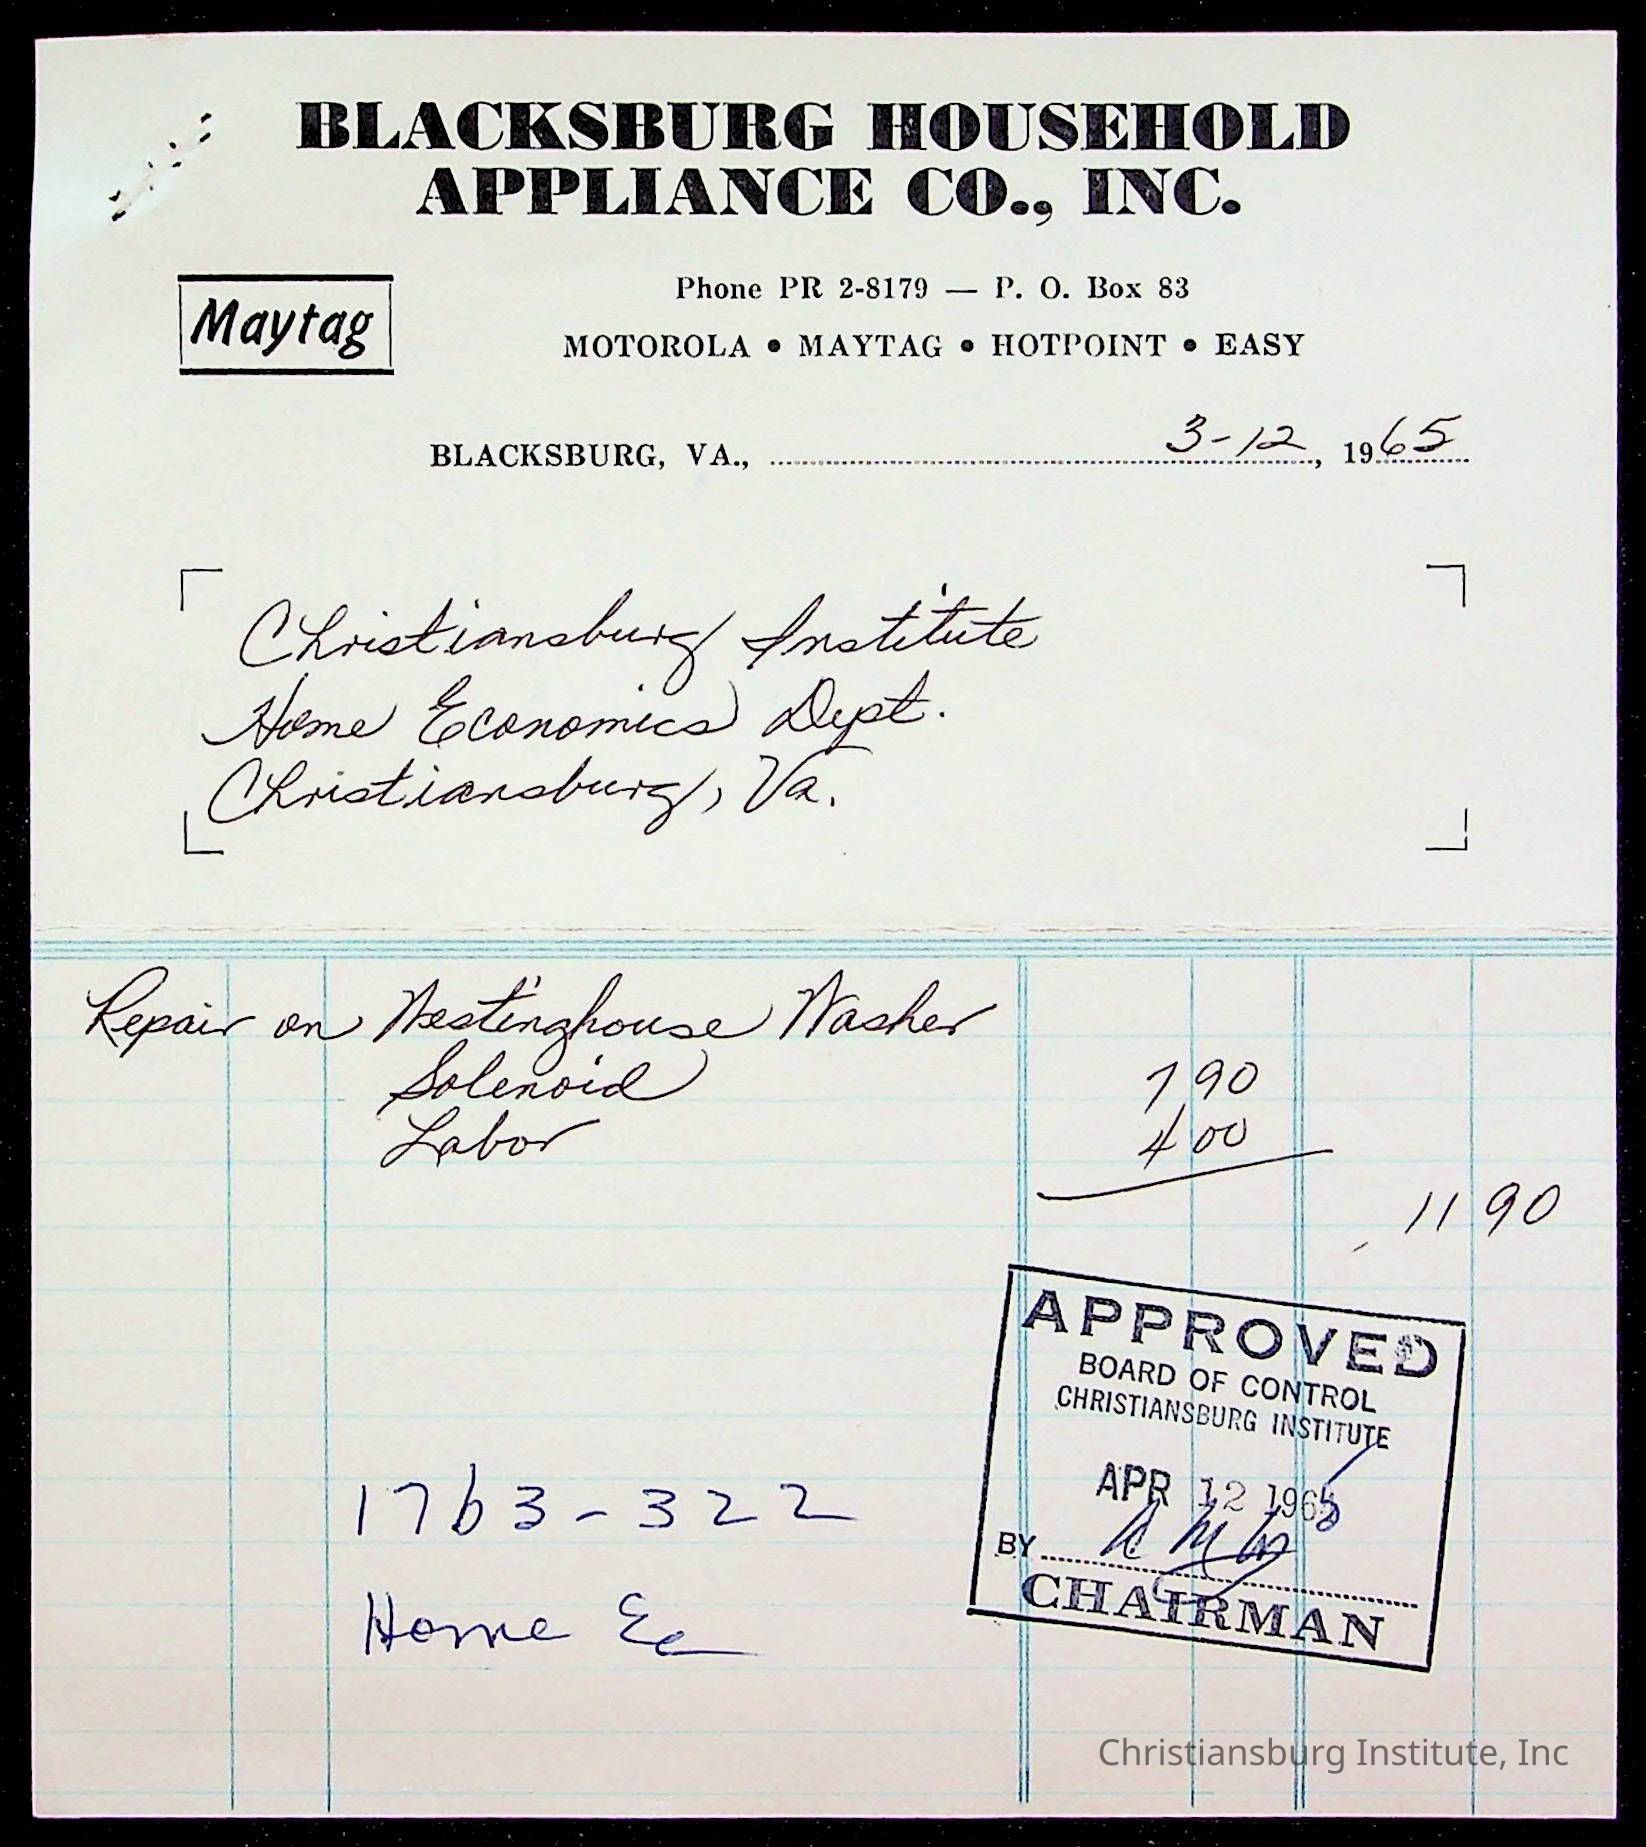 BLACKSBURG HOUSEHOLD
APPLIANCE CO., INC.
Maytag
Phone PR 2-8179 — P. O. Box 83
MOTOROLA • MAYTAG • HOTPOINT • EASY
BLACKSBURG, VA., 3-12, 1965
Christiansburg Institute
Home Economics Dept.
Christiansburg, Va.
Repair on Westinghouse Washer
Solenoid 7 90
Labor 4 00
11 90
APPROVED
BOARD OF CONTROL
CHRISTIANSBURG INSTITUTE
APR 12 1965
BY
CHAIRMAN
1763-322
Home Ec
Christiansburg Institute, Inc